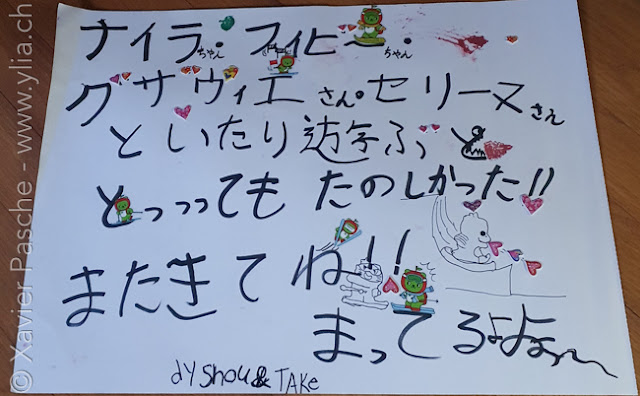 ナイラちゃん・フィビ〜ちゃん・
グザヴィエさん・セリーヌさん
といたり遊ぶと
とっっっても たのしかった!!
またきてね!!
まってるよよぉ〜
dy Shou & TAKe
© Xavier Pasche - www.ylia.ch